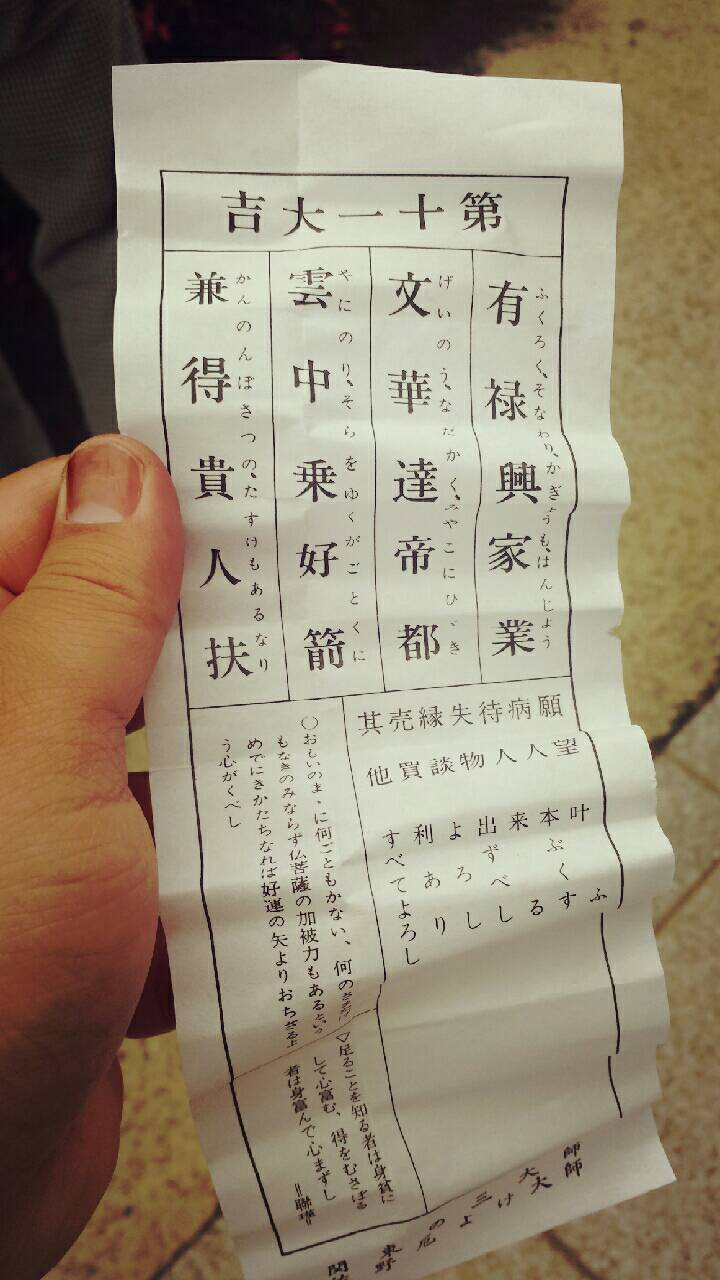 第十一大吉
有禄興家業
ふくろく、そなわり、かぎょうも、はんじょう
文華達帝都
げいのう、なだかく、みやこにひゞき
雲中乗好箭
やにのり、そらをゆくがごとくに
兼得貴人扶
かんのんぼさつの、たすけもあるなり
願望 叶ふ
病人 本ぶくす
待人 来る
失物 出ずべし
縁談 よろし
売買 利あり
其他 すべてよろし
〇おもいのまゝに何ごともかない、何の
もなきのみならず仏菩薩の加被力もある
めでにきかたちなれば好運の矢よりおちざるよ
う心がくべし
▽足ることを知る者は身貧に
して心富む、得をむさぼる
者は身富んで心まずし
師師
大大
三よけ
の厄
東野
関